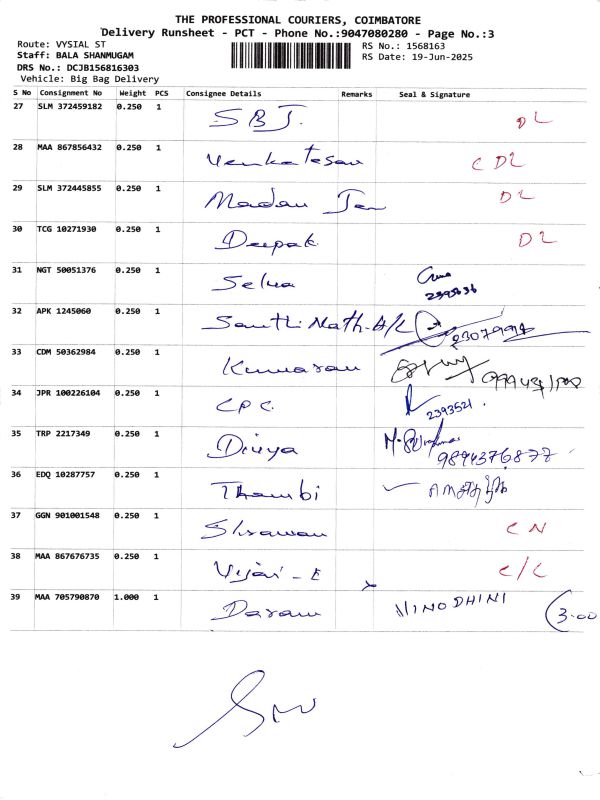 THE PROFESSIONAL COURIERS, COIMBATORE
Delivery Runsheet - PCT - Phone No.:9047080280 - Page No.:3
Route: VYSIAL ST
Staff: BALA SHANMUGAM
DRS No.: DCJB156816303
Vehicle: Big Bag Delivery
RS No.: 1568163
RS Date: 19-Jun-2025
S No Consignment No Weight PCS Consignee Details Remarks Seal & Signature
27 SLM 372459182 0.250 1 SBJ. DL
28 MAA 867856432 0.250 1 Venkatesan CDL
29 SLM 372445855 0.250 1 Madan DL
30 TCG 10271930 0.250 1 Deepak DL
31 NGT 50051376 0.250 1 Selva
2395636
32 APK 1245060 0.250 1 Santhi Nath-A/C
33 CDM 50362984 0.250 1 Kumaran
34 JPR 100226104 0.250 1 CPC. 2393521.
35 TRP 2217349 0.250 1 Divya
9894376877
36 EDQ 10287757 0.250 1 Thambi
37 GGN 901001548 0.250 1 Shrawan CN
38 MAA 867676735 0.250 1 Vijai - E C/L
39 MAA 705790870 1.000 1 VINODHINI 3.00